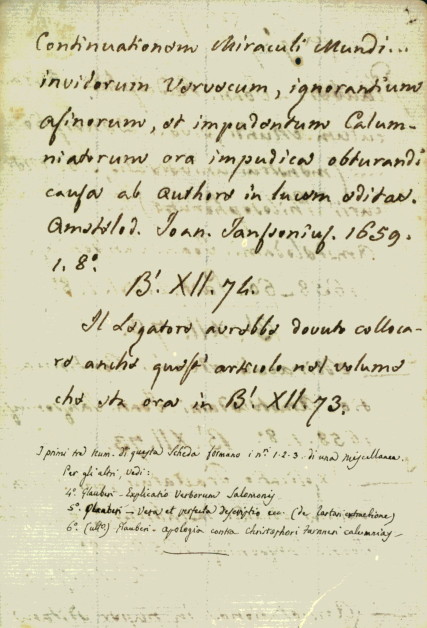 Continuationem Miraculi Mundi...
invidorum Vervecum, ignorantium
asinorum, et impudentum Calum-
niatorum ora impudica obturandi
causa ab authore in lucem editae.
Amstelod. Joan. Janssonius. 1659.
1. 8°.
B! XII. 74.
Il Legatore avrebbe dovuto colloca-
re anche quest' articolo nel volume
che sta ora in B! XII. 73.
I primi tre Num. di questa Scheda formano i n.i 1-2-3- di una Miscellanea.
Per gli altri, Vedi:
4° Glauberi - Explicatio Verborum Salomonis
5° Glauberi - Vera et perfecta descriptio ecc. (de Tartari extractione)
6° (ulto) Glauberi - Apologia contra Christophori Farnneri calumnias -